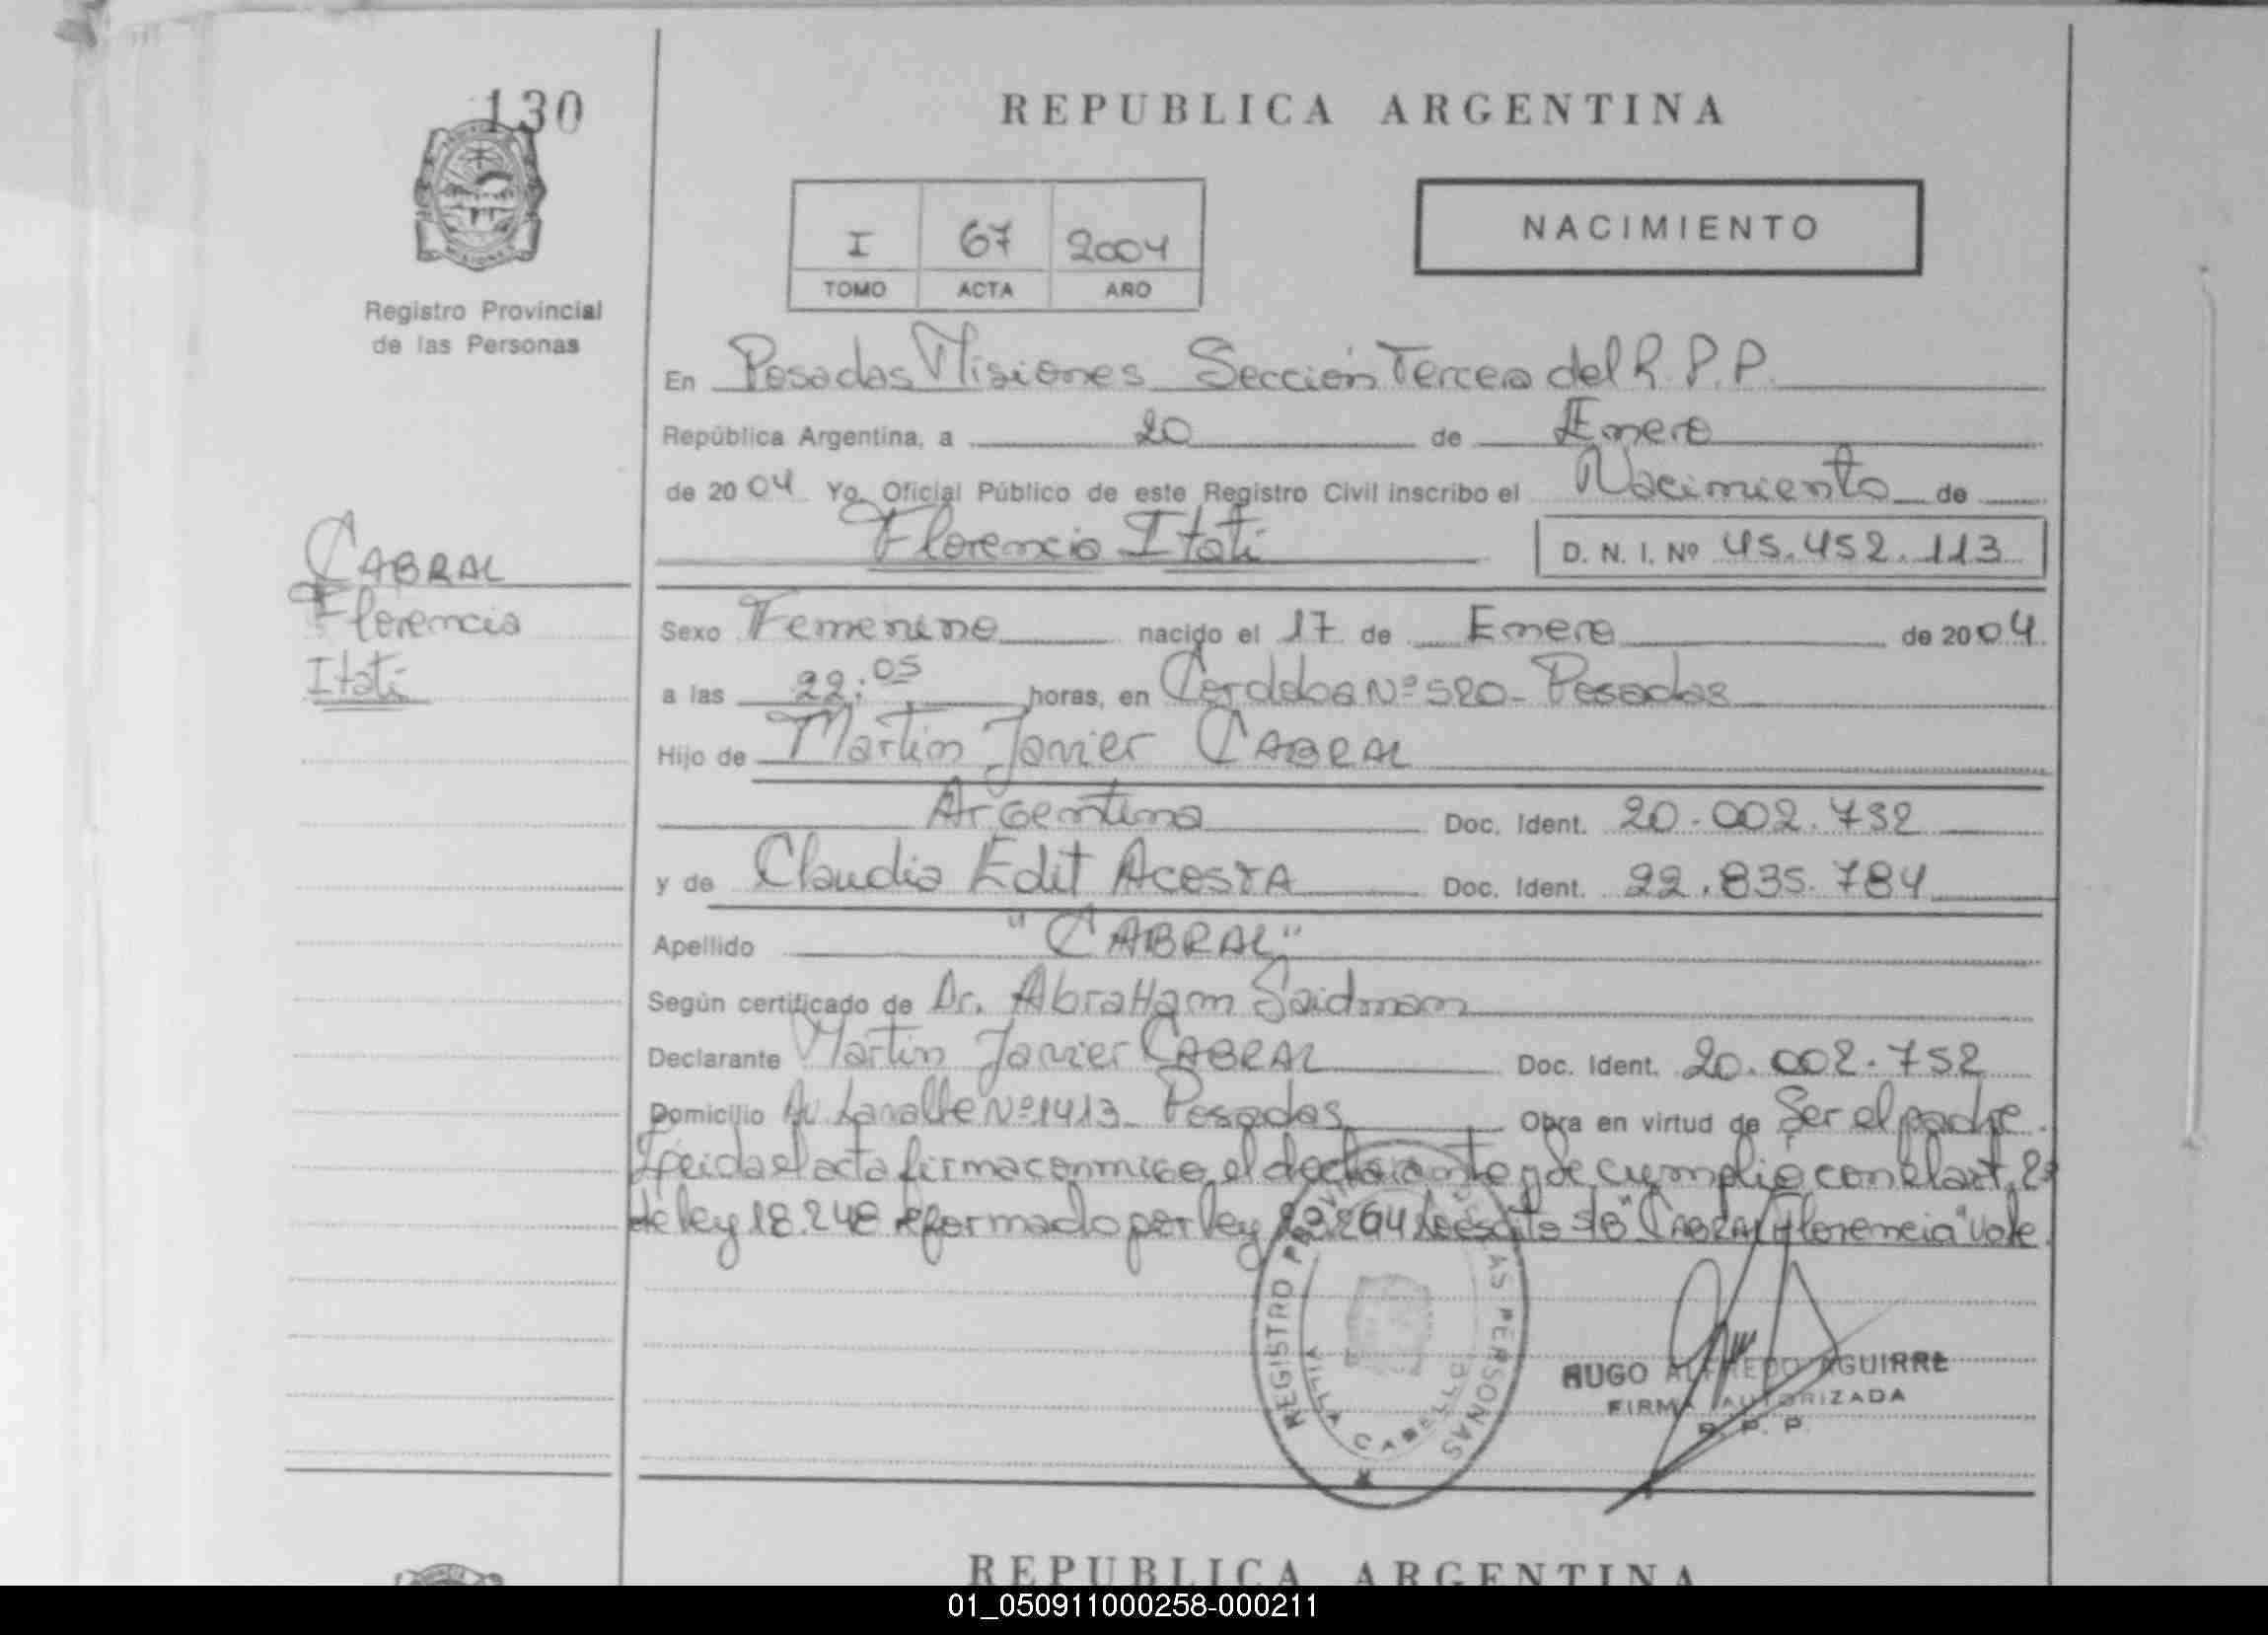 130
REPUBLICA ARGENTINA
I 67 2004
TOMO ACTA AÑO
NACIMIENTO
Registro Provincial
de las Personas
En Posadas Misiones Sección Tercera del R. P. P.
República Argentina, a 20 de Enero
de 2004 Yo, Oficial Público de este Registro Civil inscribo el Nacimiento de
Florencia Itatí
D. N. I. Nº 45.452.113
CABRAL
Florencia
Itatí
Sexo Femenino nacido el 17 de Enero de 2004
a las 22:05 horas, en Cordoba Nº 520 - Posadas
Hijo de Martin Javier CABRAL
Argentina Doc. Ident. 20.002.752
y de Claudia Edit ACOSTA Doc. Ident. 22.835.784
Apellido "CABRAL"
Según certificado de Dr. AbraHam Saidman
Declarante Martin Javier CABRAL Doc. Ident. 20.002.752
Domicilio Av. Lavalle Nº 1413 Posadas Obra en virtud de Ser el padre.
Leida el acta firma conmigo el declarante y se cumplió con el art. 2º
de ley 18.248 reformado por ley 23.264 "CABRAL Florencia" Vale.
REGISTRO AS PERSONAS
VILLA CABELLO
HUGO ALFREDO AGUIRRE
FIRMA AUTORIZADA
R. P. P.
REPUBLICA ARGENTINA
01_050911000258-000211